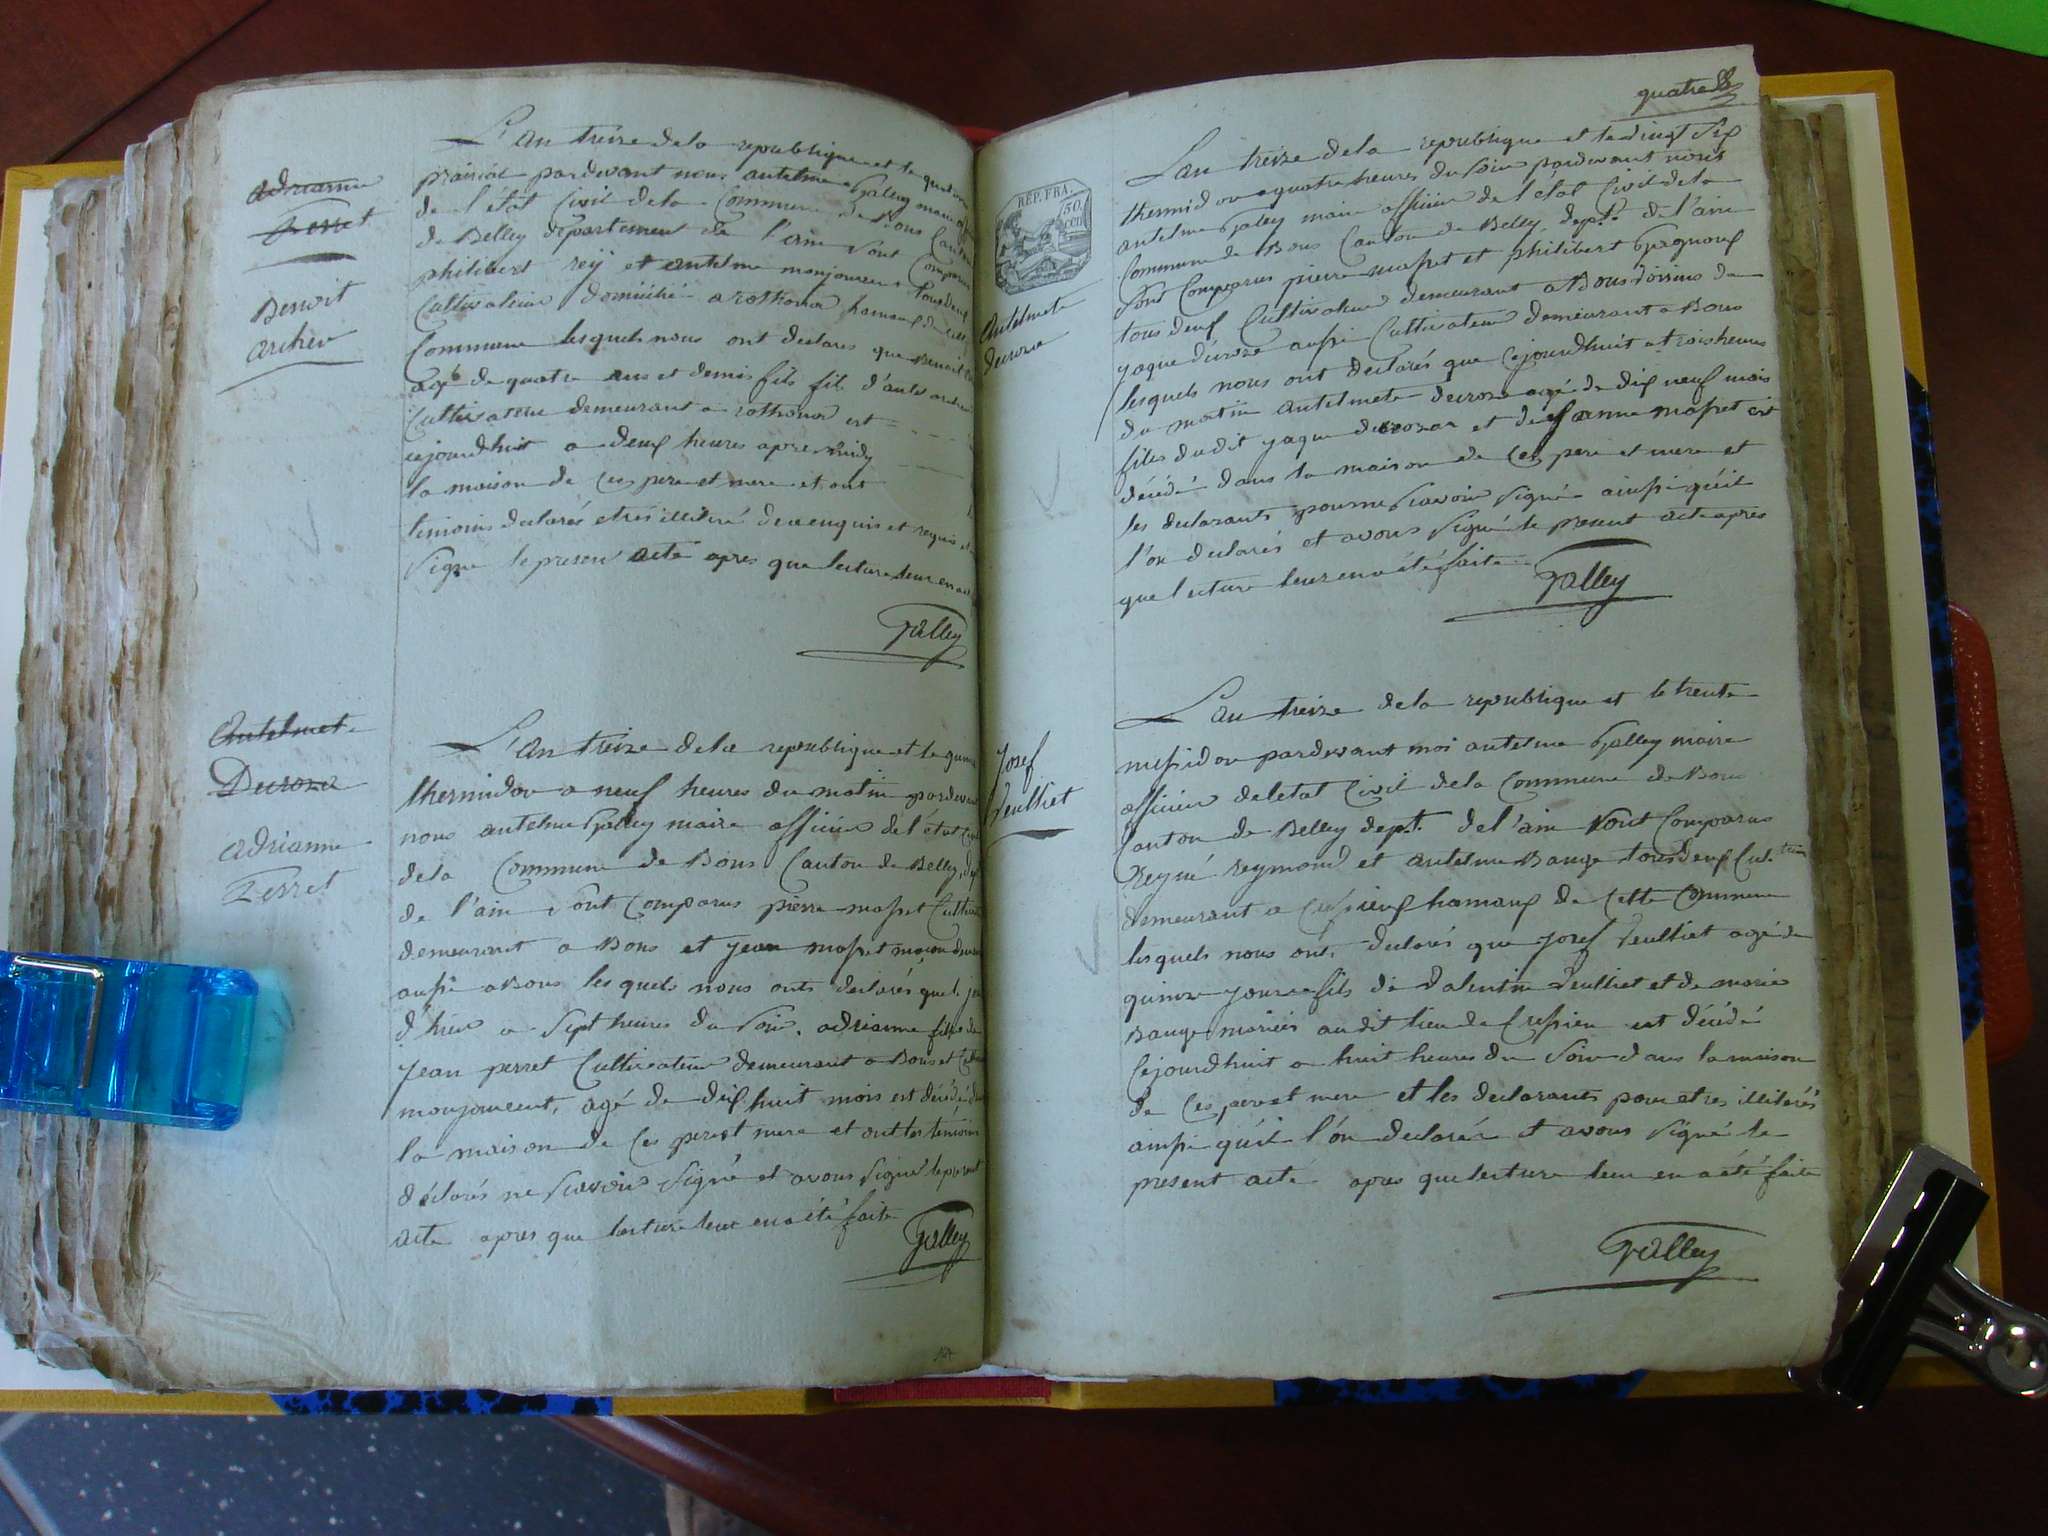 adrianne
Perret
Benoit
archer
L'an treize de la republique et le
prairial pardevant nous antelme Galley maire
de l'état Civil de la Commune de Bons Canton
de Belley département de l'ain sont Comparus
philibert rey et antelme monjouvent tous deux
Cultivateur domicilié a rothonod hameau de cette
Commune lesquels nous ont declares que Benoit
agé de quatre ans et demis fils
Cultivateur demeurant a rothonod est
cejourdhuit a deux heures apres midy
la maison de Ces pere et mere et ont
temoins declarés etres illiteré de ce enquis et requis et
Signé le presen acte apres que lecture leur en a
Galley
Antelmet
Decroza
adrianne
Perret
L'an treize de la republique et le
thermidor a neuf heures du matin pardevant
nous antelme Galley maire officier de l'état Civil
de la Commune de Bons Canton de Belley dept
de l'ain sont Comparus pierre masset Cultiva
demeurant a Bons et jean masset
aussi a Bons les quels nous onts declarés que le jour
d'hier a Sept heures du Soir adrianne fille de
jean perret Cultivateur demeurant a Bons et
monjouvent, agé de dix huit mois est décédé dans
la maison de Ces pere et mere et ont les temoins
déclarés ne Scavoir Signé et avons Signé le present
acte apres que lecture leur en a été faite
Galley
quatre
REP. FRA.
50
CEN
Antelmete
decroze
L'an treize de la republique et le vingt Six
thermidor a quatre heures du Soir pardevant nous
antelme Galey maire officier de l'état Civil de la
Commune de Bons Canton de Belley dept. de l'ain
Sont Comparus pierre masset et philibert Gagnoux
tous deux Cultivateur demeurant a Bons voisins de
jaque decroze aussi Cultivateur demeurant a Bons
lesquels nous ont declarés que Cejourdhuit a trois heures
du matin antelmete decroze agé de dix neuf mois
files dudit jaque decroza et de jeanne masset est
décédé dans la maison de Ces pere et mere et
les declarants pour ne Scavoir Signé ainssi quil
l'on declarés et avons Signé le present acte apres
que lecture leur en a été faite
Galley
Josef
Veulliet
L'an treize de la republique et le trente
messidor pardevant moi antelme Galley maire
officier de letat Civil de la Commune de Bons
Canton de Belley dept. de l'ain sont Comparus
reymond et antelme Bauge tous deux Cult.
demeurant a Cressieux hamaux de Cette Commune
lesquels nous ont declarés que josef Veulliet agé de
quinze jour fils de Valentin Veulliet et de marie
Bauge mariés au dit lieu de Cressieu est décédé
Cejourdhuit a huit heures du Soir dans la maison
de Ces pere et mere et les declarants pour etres illiterés
ainssi quil l'on declarés et avons Signé le
present acte apres que lecture leur en a été faite
Galley